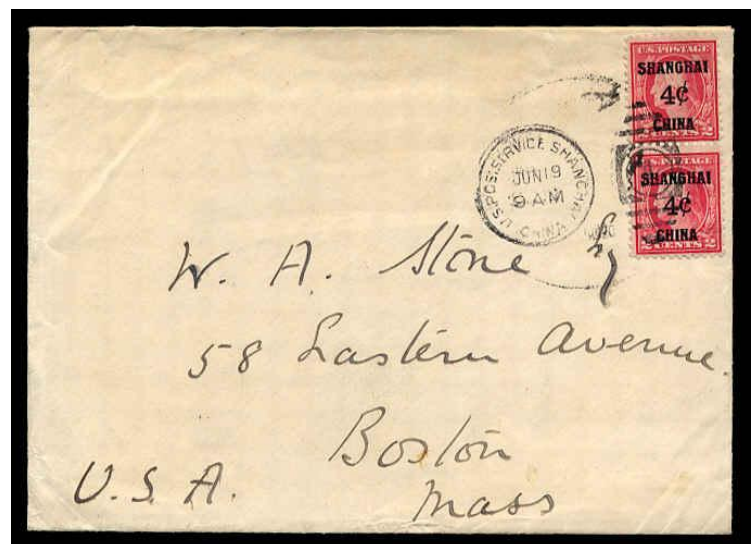 U.S. POSTAGE
SHANGHAI
4¢
CHINA
2 CENTS 2
U.S. POSTAGE
SHANGHAI
4¢
CHINA
2 CENTS 2
SERVICE SHANGHAI
JUN 19
9 AM
CHINA
W. A. Stone
58 Eastern Avenue.
Boston
U.S.A.
Mass